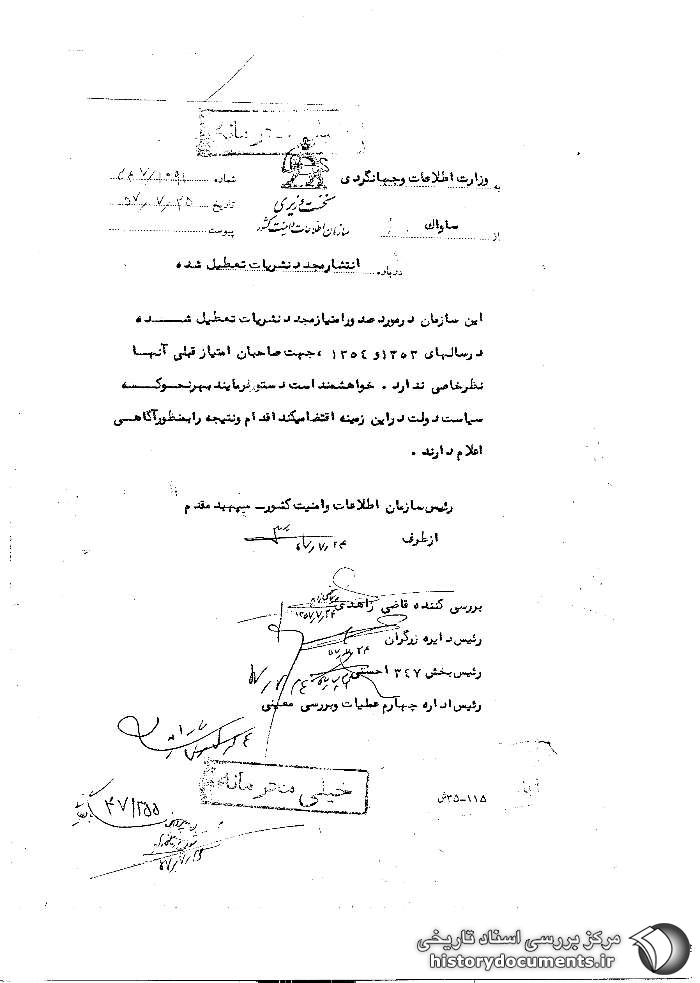 خیلی محرمانه
به وزارت اطلاعات و جهانگردی
شماره
نخست وزیری
تاریخ ۵۷/۷/۲۵
از ساواک
سازمان اطلاعات و امنیت کشور
پیوست
درباره انتشار مجدد نشریات تعطیل شده
این سازمان در مورد صدور امتیاز مجدد نشریات تعطیل شده
در سالهای ۱۳۵۳ و ۱۳۵٤ ، جهت صاحبان امتیاز قبلی آنها
نظر خاصی ندارد . خواهشمند است دستور فرمایند بهر نحو که
سیاست دولت در این زمینه اقتضا میکند اقدام و نتیجه را بمنظور آگاهی
اعلام دارند .
رئیس سازمان اطلاعات و امنیت کشور – سپهبد مقدم
از طرف
۵۷/۷/۲۴
بررسی کننده قاضی زاهدی
۱۳۵۷/۷/۲۴
رئیس دایره زرگران
رئیس بخش ۳٤۷ احسنی
رئیس اداره چهارم عملیات و بررسی معینی
خیلی محرمانه
۱۱۵-۳۵ش
مرکز بررسی اسناد تاریخی
historydocuments.ir